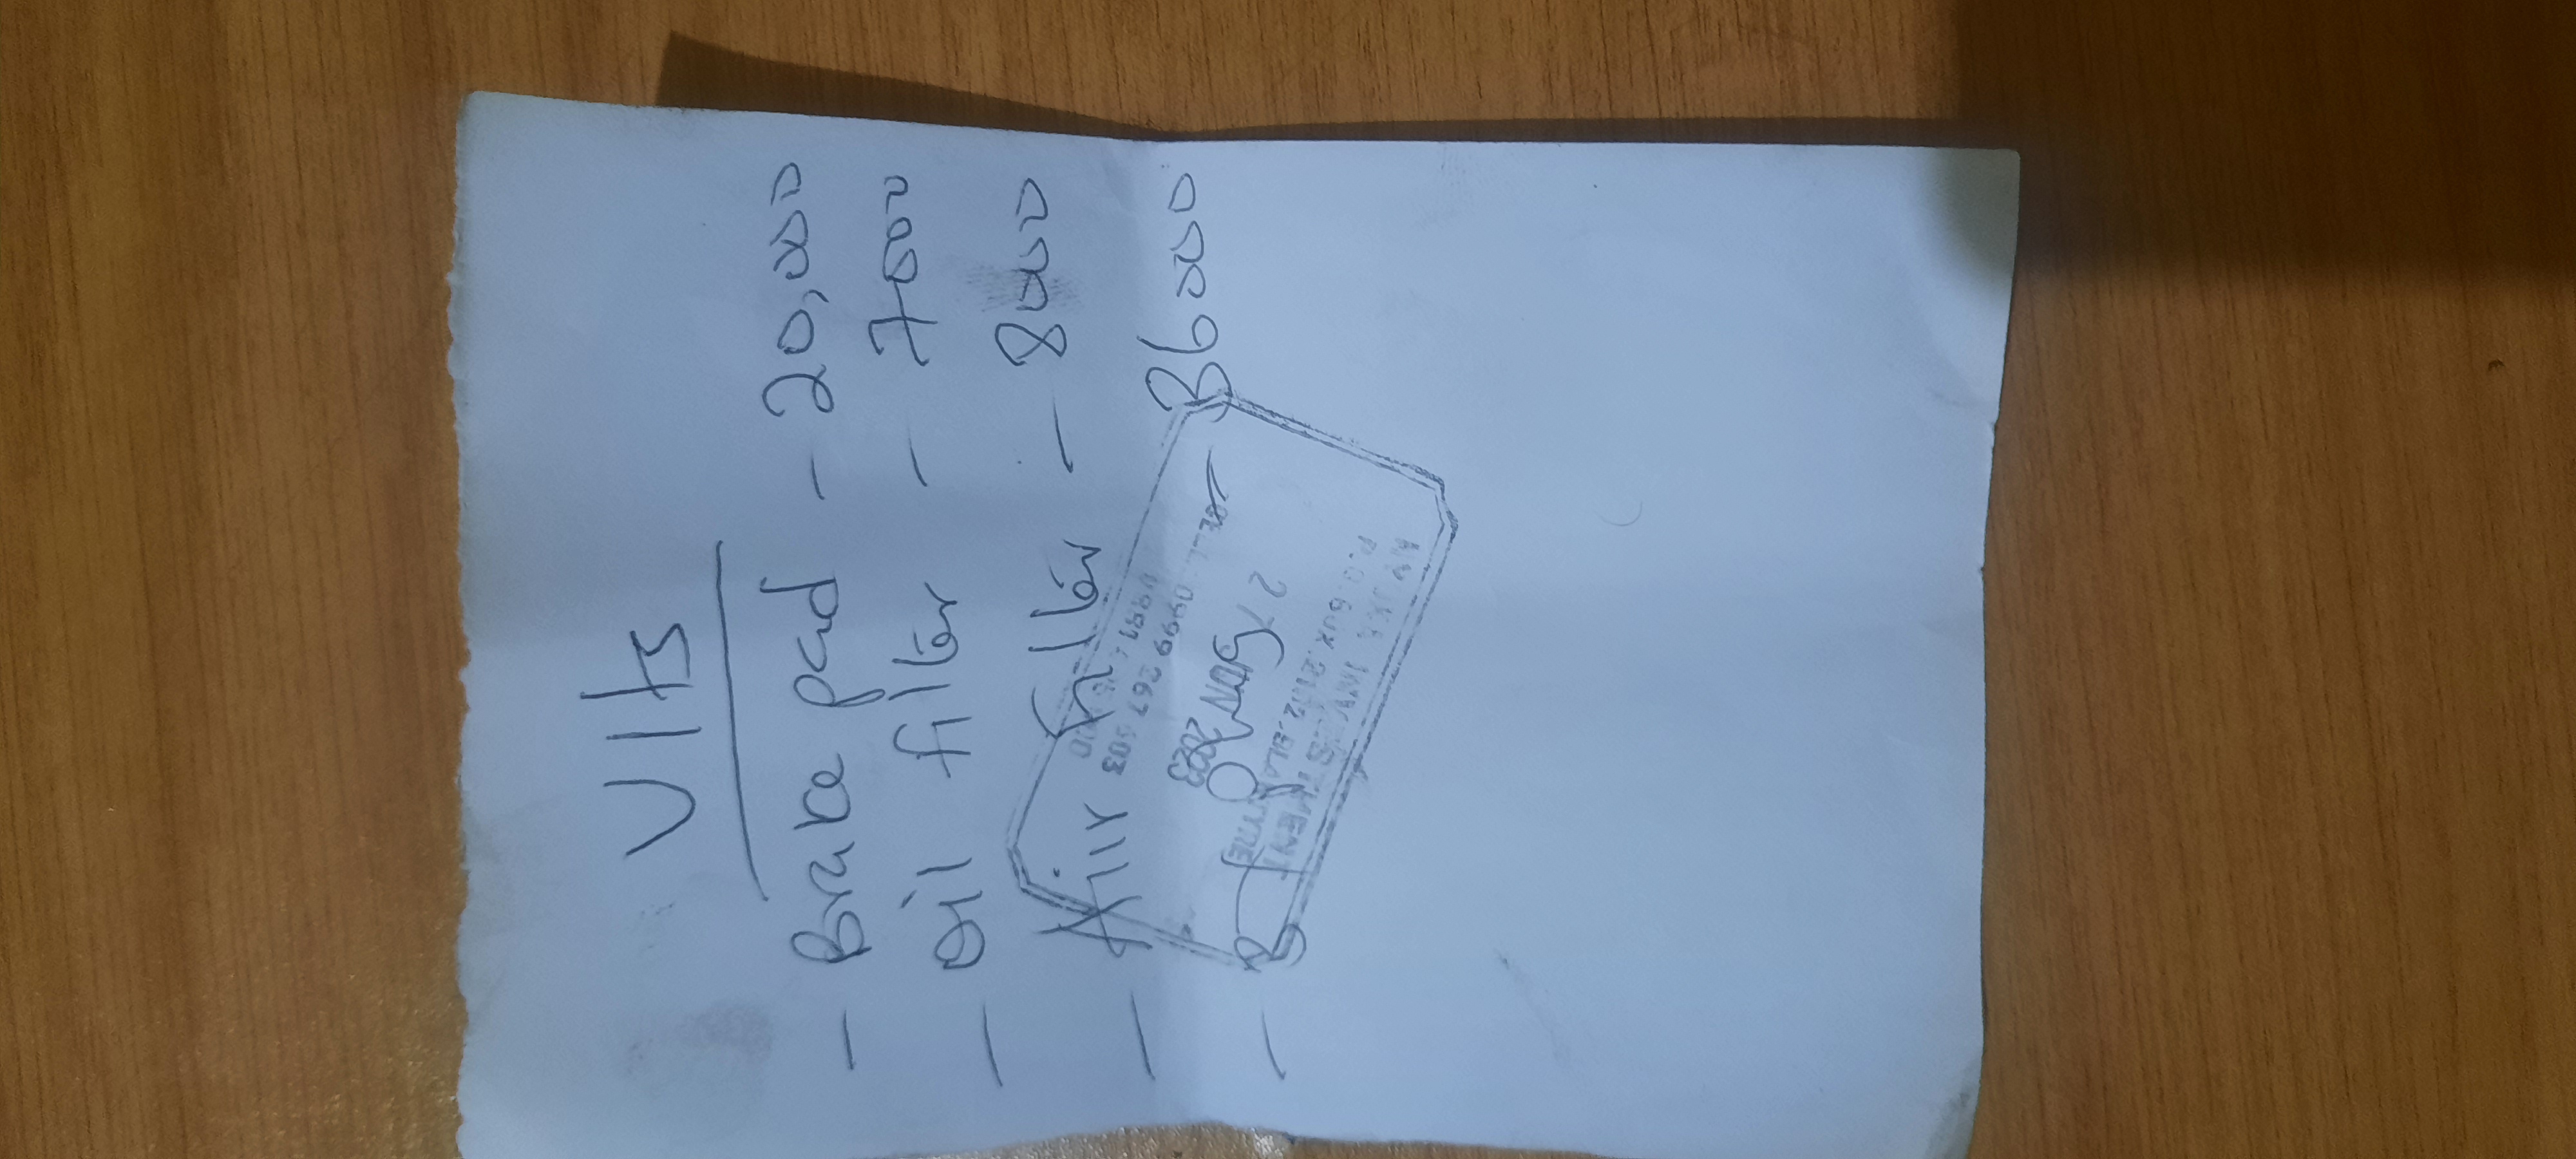 VIts
- Brake pad - 20,000
- Oil filter - 7000
- Aiir filter - 8000
- - 36000
INVESTMENT
P.O. BOX 2102, BLANTYRE
27 JUN 2023
CELL: 0999 267